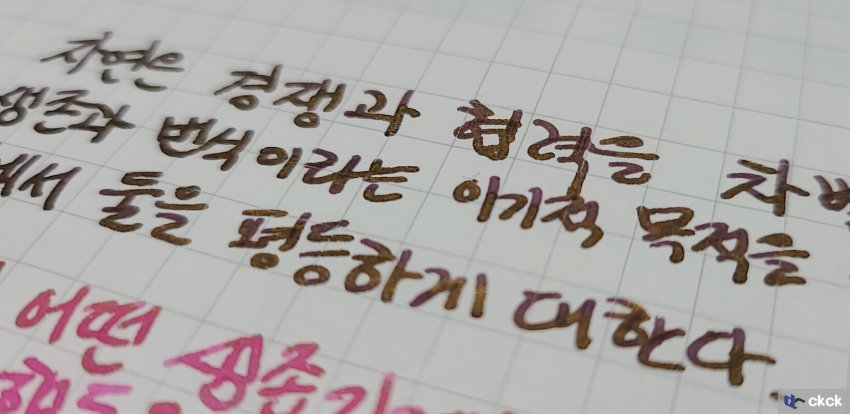 자연은 경쟁과 협력을
생존과 번식이라는 이기적 목적을
에서 둘을 평등하게 대한다.
어떤 생존
ckck